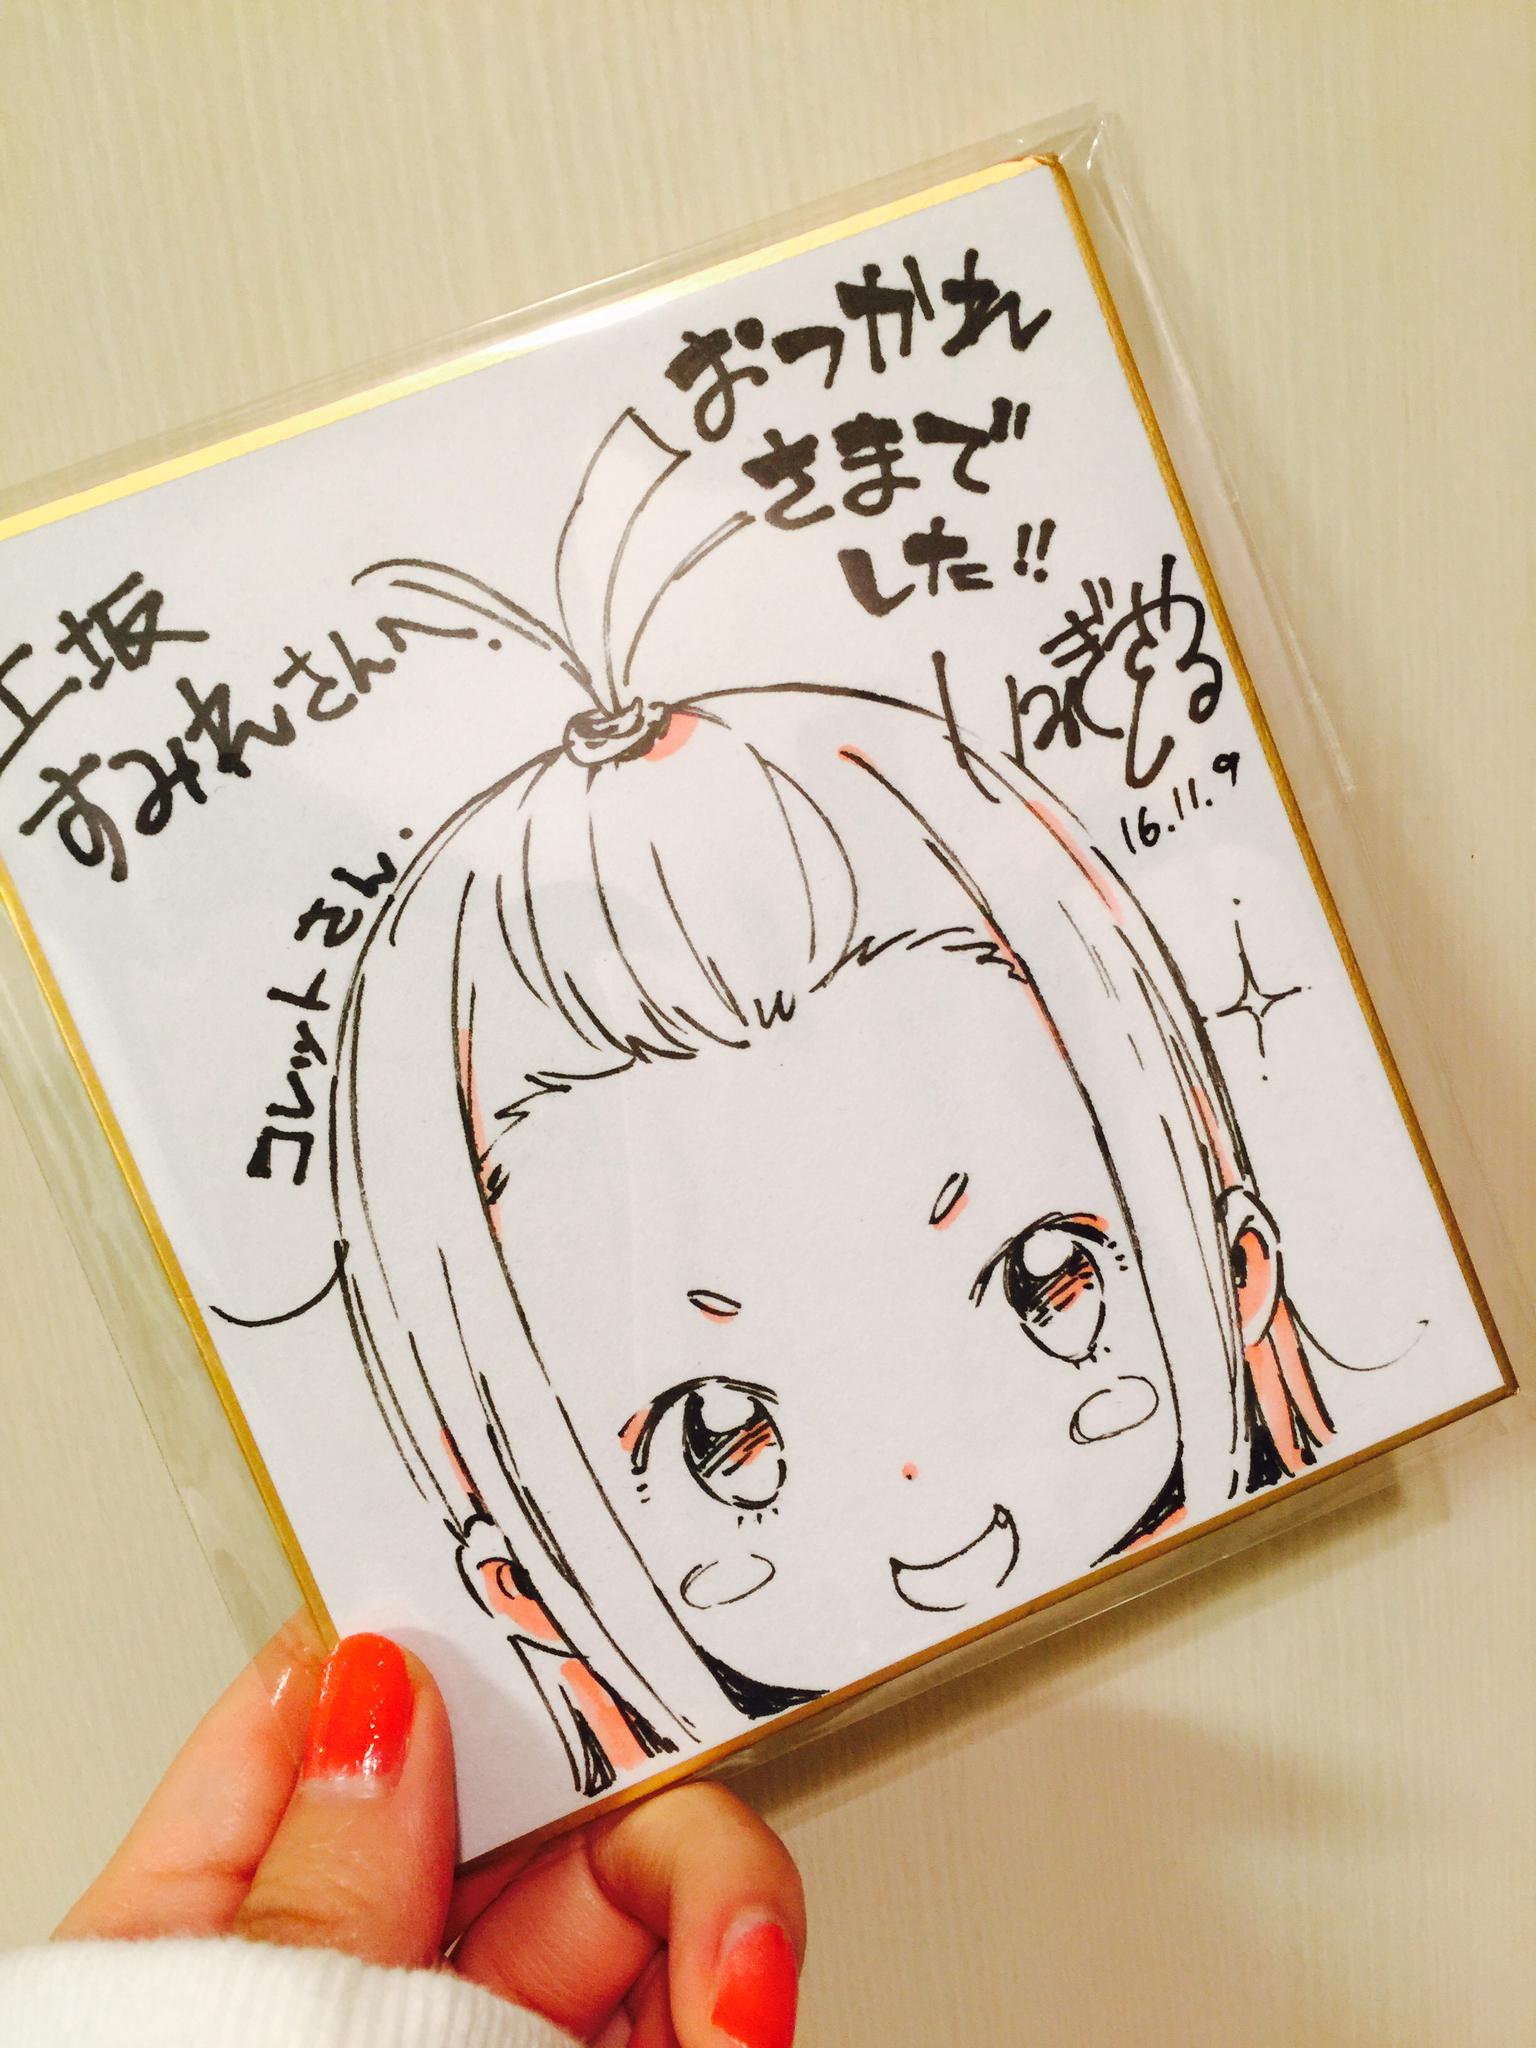 おつかれ
さまで
した!!
16.11.9
上坂
すみれさんへ.
コレットさん.